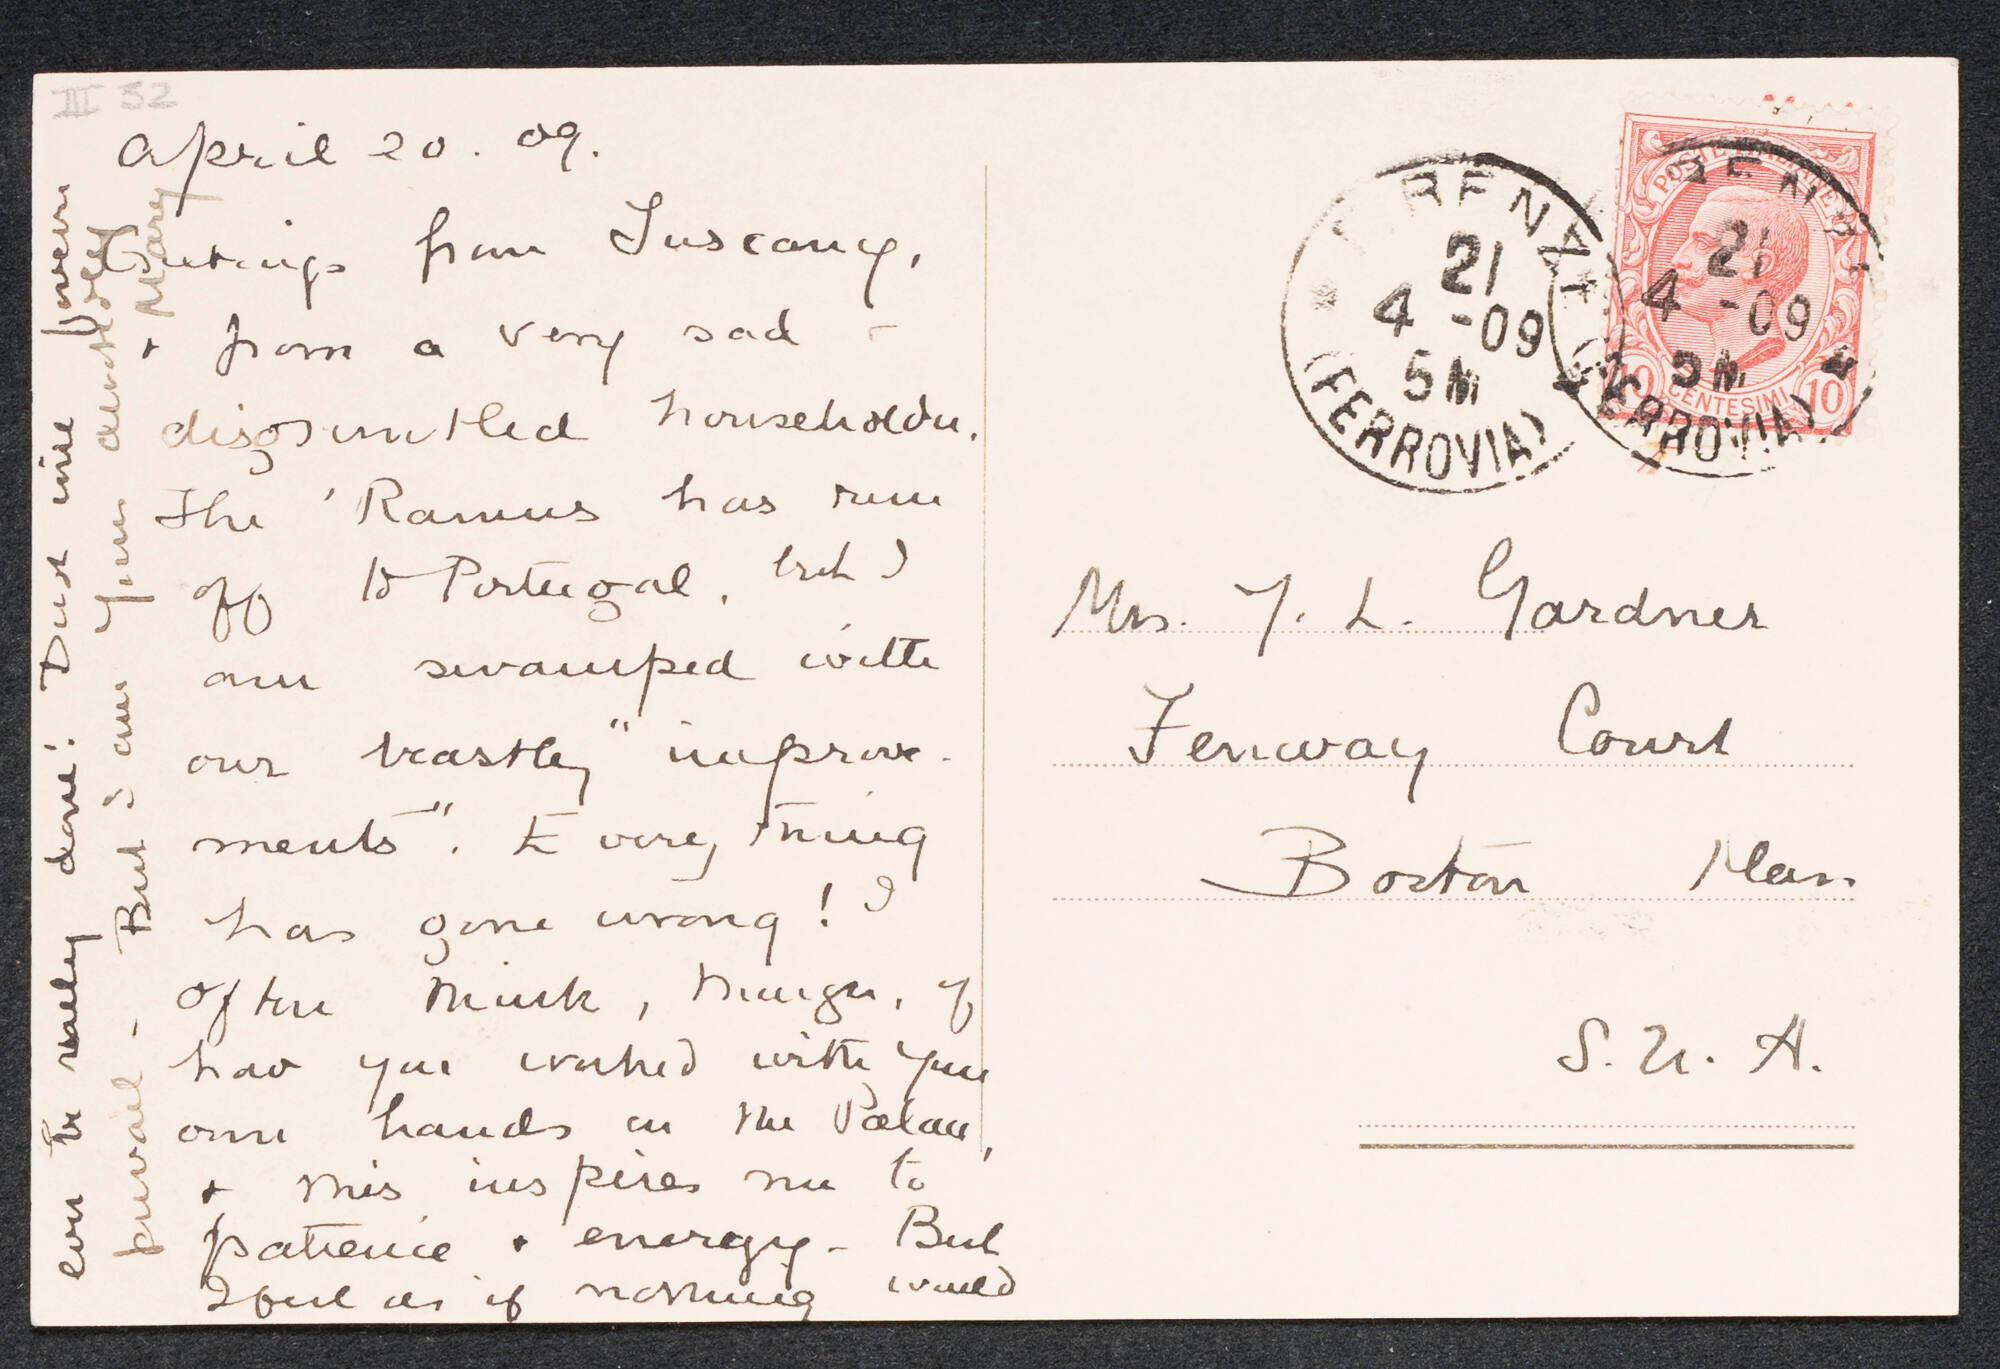 III 32
April 20. 09.
Greetings from Tuscany,
+ from a very sad
disgruntled householder.
The 'Ramus has run
off to Portugal, but I
am swamped with
our beastly "improve-
ments". Everything
has gone wrong! I
often think, though, of
how you worked with your
own hands in the Palace,
+ this inspires me to
patience + energy - But
I feel as if nothing would
ever be really done! Dust will
prevail - But I am yours devotedly
Mary
FIRENZE
21
4 - 09
5M
(FERROVIA)
POSTE ITALIANE
10 CENTESIMI 10
FIRENZE
21
4 - 09
5M
(FERROVIA)
Mrs. J. L. Gardner
Fenway Court
Boston Mass
S. U. A.